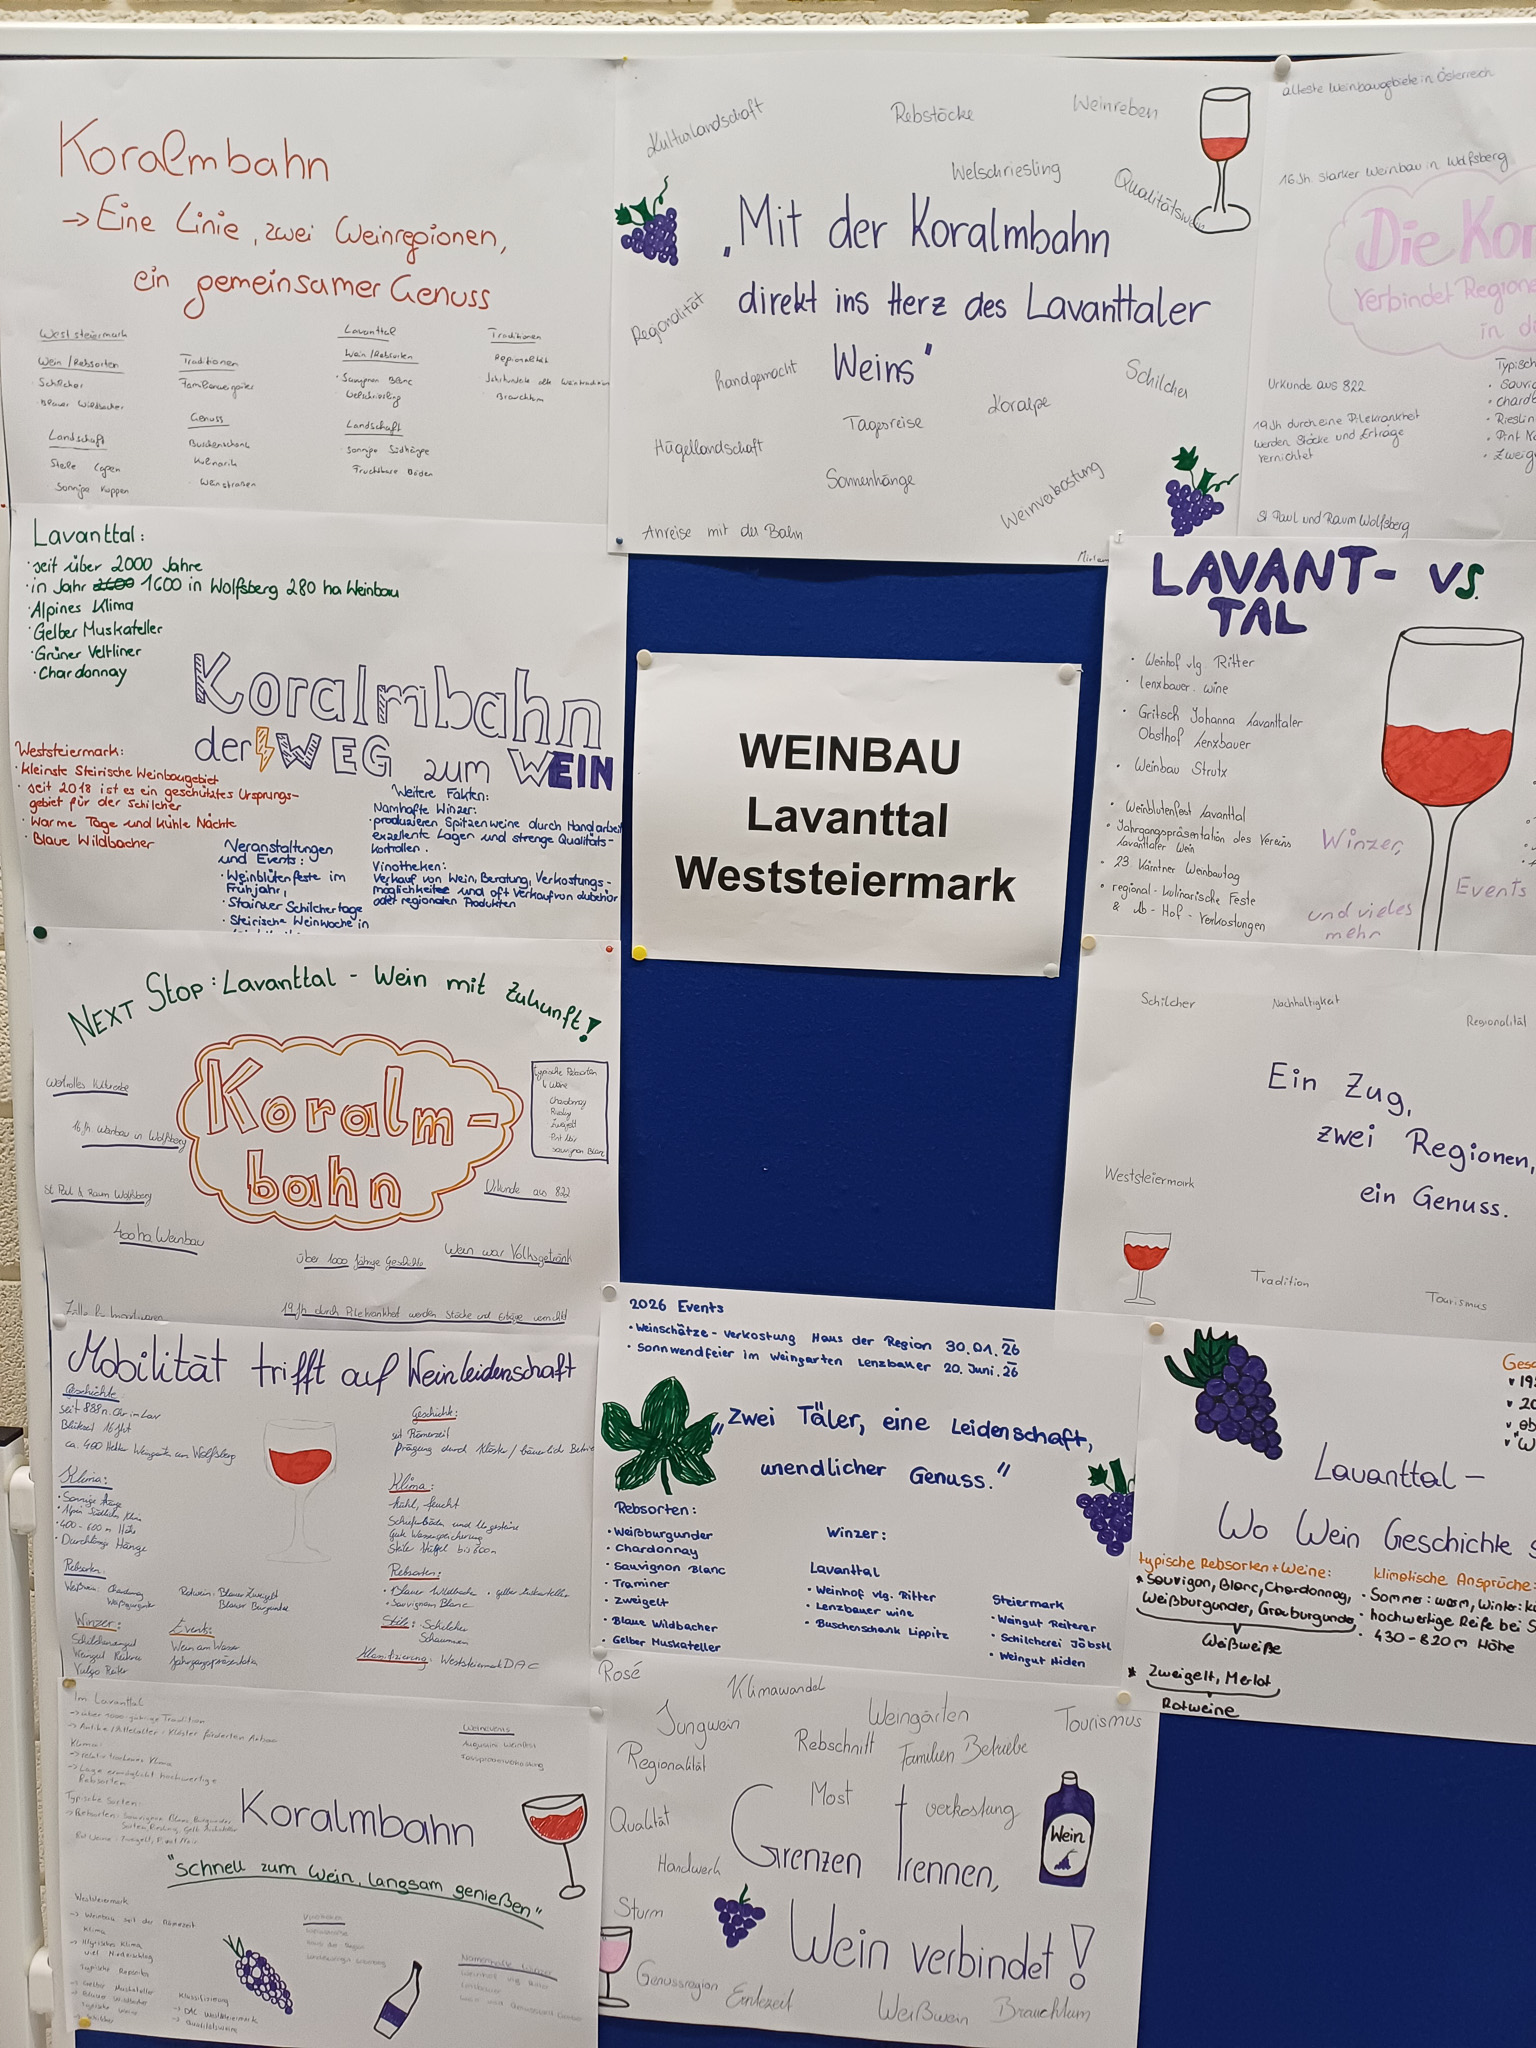 Koralmbahn
→ Eine Linie, zwei Weinregionen,
ein gemeinsamer Genuss
Weststeiermark
Wein/Rebsorten
Schilcher
Blauer Wildbacher
Landschaft
Steile Lagen
Sonnige Kuppen
Traditionen
Genuss
Buschenschank
Kulinarik
Weinstraßen
Lavanttal
Wein/Rebsorten
Sauvignon Blanc
Welschriesling
Landschaft
sonnige Südhänge
Fruchtbare Böden
Traditionen
Regionalität
Jahrhunderte alte Weintradition
Brauchtum
Kulturlandschaft
Rebstöcke
Weinreben
Welschriesling
Qualitätswein
„Mit der Koralmbahn
direkt ins Herz des Lavanttaler
Weins"
Regionalität
handgemacht
Schilcher
Tagesreise
Koralpe
Hügellandschaft
Sonnenhänge
Weinverkostung
Anreise mit der Bahn
älteste Weinbaugebiete in Österreich
16 Jh starker Weinbau in Wolfsberg
Die Kor
verbindet Regione
in di
Urkunde aus 822
19 Jh durch eine Pilzkrankheit
werden Stöcke und Erträge
vernichtet
St Paul und Raum Wolfsberg
Typisch
· Sauvig
· Chardo
· Riesling
· Zweig
Lavanttal:
· seit über 2000 Jahre
· in Jahr 1600 in Wolfsberg 280 ha Weinbau
· Alpines Klima
· Gelber Muskateller
· Grüner Veltliner
· Chardonnay
Koralmbahn
der WEG zum WEIN
Weststeiermark:
· kleinste Steirische Weinbaugebiet
· seit 2018 ist es ein geschütztes Ursprungs-
gebiet für der Schilcher
· Warme Tage und kühle Nächte
· Blaue Wildbacher
Veranstaltungen
und Events:
· Weinblütenfeste im
Frühjahr,
· Stainzer Schilchertage
· Steirische Weinwoche in
Weitere Fakten:
Namhafte Winzer:
· produzieren Spitzenweine durch Handarbeit
exzellente Lagen und strenge Qualitäts-
kontrollen.
Vinotheken:
Verkauf von Wein, Beratung, Verkostungs-
möglichkeiten und oft Verkauf von Zubehör
oder regionalen Produkten
WEINBAU
Lavanttal
Weststeiermark
LAVANT- VS.
TAL
· Weinhof vlg. Ritter
· Lenzbauer. wine
· Gritsch Johanna Lavanttaler
Obsthof Lenzbauer
· Weinbau Strutz
· Weinblütenfest Lavanttal
· Jahrgangspräsentation des Vereins
Lavanttaler Wein
· 23. Kärntner Weinbautag
· regional-kulinarische Feste
& Ab-Hof-Verkostungen
Winzer,
Events
und vieles
mehr
NEXT Stop: Lavanttal - Wein mit Zukunft!
Koralm-
bahn
wertvolles Kulturerbe
16 Jh Weinbau in Wolfsberg
St Paul & Raum Wolfsberg
400 ha Weinbau
über 1000 jährige Geschichte
Wein war Volksgetränk
Urkunde aus 822
typische Rebsorten
& Weine
Chardonnay
Riesling
Zweigelt
Pint Noir
Sauvignon Blanc
19 Jh durch Pilzkrankheit werden Stöcke und Erträge vernichtet
Schilcher
Nachhaltigkeit
Regionalität
Ein Zug,
zwei Regionen,
ein Genuss.
Weststeiermark
Tradition
Tourismus
Mobilität trifft auf Weinleidenschaft
Geschichte
Blütezeit 16 Jht
Klima:
· Sonnige Hänge
· 400-600 m Höhe
· Durchlässige Hänge
Rebsorten:
Weißwein: Chardonnay
Weißburgunder
Rotwein: Blauer Zweigelt
Blauer Burgunder
Winzer:
Vulgo Ritter
Events:
Wein am Wasser
Jahrgangspräsentation
Geschichte:
seit Römerzeit
Prägung durch Klöster / bäuerlich Betrie
Klima:
kühl, feucht
Schieferböden und Urgesteine
Gute Wasserspeicherung
Steile Hügel bis 600m
Rebsorten:
· Blauer Wildbacher · gelber Muskateller
· Sauvignon Blanc
Stile: Schilcher
Klassifizierung: Weststeiermark DAC
2026 Events
· Weinschätze-Verkostung Haus der Region 30.01.26
· Sonnwendfeier im Weingarten Lenzbauer 20. Juni. 26
„Zwei Täler, eine Leidenschaft,
unendlicher Genuss."
Rebsorten:
· Weißburgunder
· Chardonnay
· Sauvignon Blanc
· Traminer
· Zweigelt
· Blaue Wildbacher
· Gelber Muskateller
Winzer:
Lavanttal
· Weinhof vlg. Ritter
· Lenzbauer wine
· Buschenschank Lippitz
Steiermark
· Weingut Reiterer
· Schilcherei Jöbstl
· Weingut Hiden
Lavanttal -
Wo Wein Geschichte s
typische Rebsorten + Weine:
* Sauvigon, Blanc, Chardonnay,
Weißburgunder, Grauburgunder
Weißweiße
* Zweigelt, Merlot
Rotweine
klimatische Ansprüche:
· Sommer: warm, Winter: k
· hochwertige Reife bei S
· 430-820 m Höhe
Im Lavanttal
→ über 1000-jährige Tradition
→ Antike/Mittelalter: Klöster förderten Anbau
Klima:
→ relativ trockenes Klima
→ Lage ermöglicht hochwertige
Rebsorten
Typische Sorten:
Weinevents
Koralmbahn
"schnell zum Wein, langsam genießen"
Weststeiermark
→ Weinbau seit der Römerzeit
Klima
→ Illyrisches Klima
viel Niederschlag
Typische Rebsorten
→ Gelber Muskateller
→ Blauer Wildbacher
Typische Weine
→ Schilcher
Klassifizierung
→ DAC Weststeiermark
→ Qualitätswein
Vinotheken
Namenhafte Winzer
Rosé
Klimawandel
Jungwein
Weingärten
Tourismus
Regionalität
Rebschnitt
Familien Betriebe
Most
Verkostung
Qualität
Grenzen trennen,
Handwerk
Wein
Sturm
Wein verbindet!
Genussregion
Erntezeit
Weißwein
Brauchtum